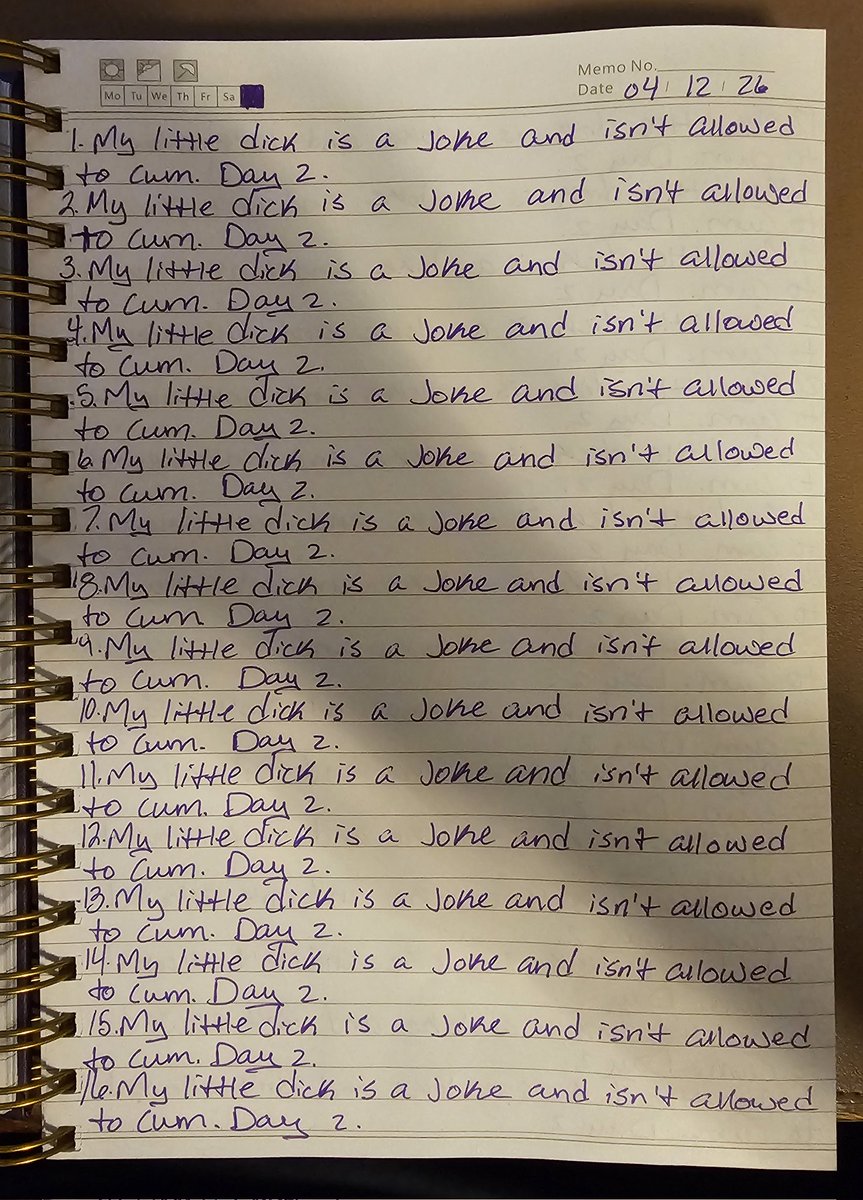 Memo No.
Mo Tu We Th Fr Sa
Date 04 / 12 / 26
1. My little dick is a Joke and isn't allowed
to cum. Day 2.
2. My little dick is a Joke and isn't allowed
to cum. Day 2.
3. My little dick is a Joke and isn't allowed
to cum. Day 2.
4. My little dick is a Joke and isn't allowed
to cum. Day 2.
5. My little dick is a Joke and isn't allowed
to cum. Day 2.
6. My little dick is a Joke and isn't allowed
to cum. Day 2.
7. My little dick is a Joke and isn't allowed
to cum. Day 2.
8. My little dick is a Joke and isn't allowed
to cum. Day 2.
9. My little dick is a Joke and isn't allowed
to cum. Day 2.
10. My little dick is a Joke and isn't allowed
to cum. Day 2.
11. My little dick is a Joke and isn't allowed
to cum. Day 2.
12. My little dick is a Joke and isn't allowed
to cum. Day 2.
13. My little dick is a Joke and isn't allowed
to cum. Day 2.
14. My little dick is a Joke and isn't allowed
to cum. Day 2.
15. My little dick is a Joke and isn't allowed
to cum. Day 2.
16. My little dick is a Joke and isn't allowed
to cum. Day 2.